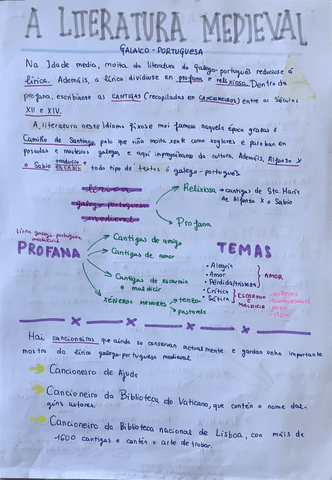 A LITERATURA MEDIEVAL
GALAICO-PORTUGUESA
Na Idade media, moita da literatura do Galego-portugués reducuse á
lírica. Ademáis, a lírica dividiuse en profana e relixiosa. Dentro da
profana, escribíanse as CANTIGAS (recopiladas en CANCIONEIROS) entre os Séculos
XII e XIV.
A literatura neste Idioma fíxose moi famosa naquela época grazas ó
Camiño de Santiago, polo que viña moita xente como xoglares e paraban en
posadas e mosteiros galegos, e aquí impregnábanse da cultura. Ademáis, Alfonso X
o Sabio traduciu e escribir todo tipo de textos ó galego-portugués.
lírica
galego-portuguesa
medieval
Relixiosa → cantigas de Sta. María
de Alfonso X o Sabio
Profana
lírica galego-portuguesa
medieval
PROFANA
Cantigas de amigo
Cantigas de amor
Cantigas de escarnio
e maldicir
XÉNEROS MENORES → tenzón
pastorela
TEMAS
• Alegría
• Amor
• Perdida/tristeza
AMOR
• Crítica
• Sátira
ESCARNIO E
MALDICIR
Hai cancioneiros que aínda se conservan actualmente e gardan unha importante
mostra da lírica galego-portuguesa medieval
→ Cancioneiro de Ajuda
→ Cancioneiro da Biblioteca do Vaticano, que contén o nome dal-
gúns autores.
→ Cancioneiro da Biblioteca nacional de Lisboa, con máis de
1600 cantigas e contén o arte de trobar.